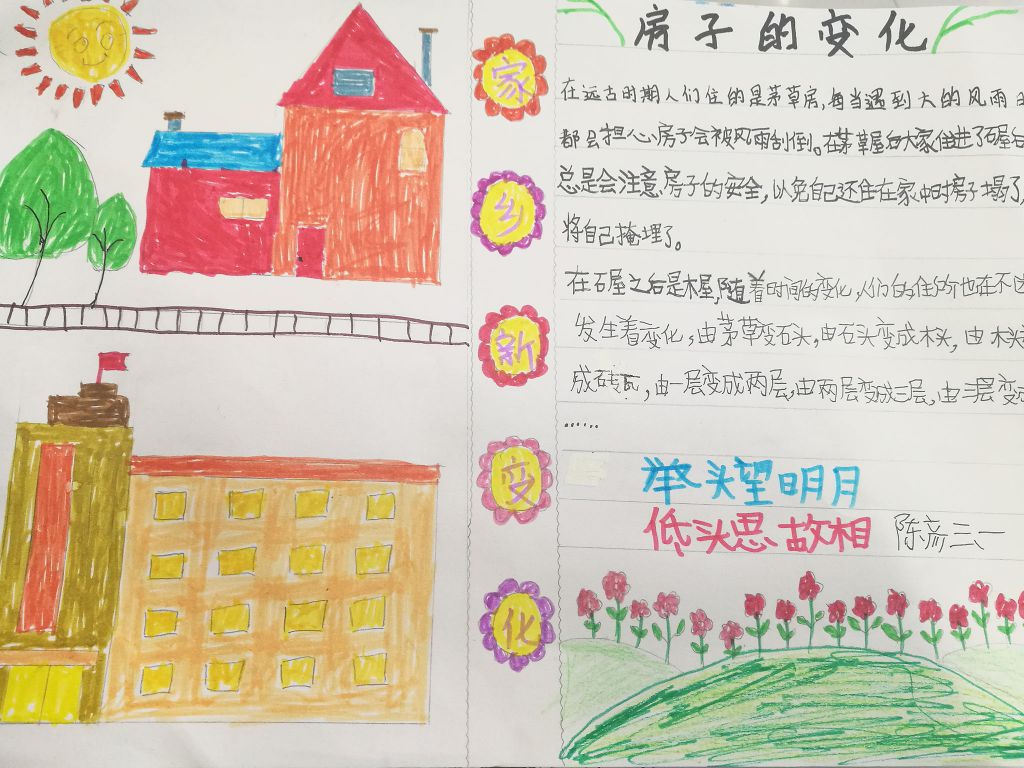 家乡新变化
房子的变化
在远古时期人们住的是茅草房,每当遇到大的风雨
都会担心房子会被风雨刮倒。在茅草屋后大家住进了石屋
总是会注意房子的安全,以免自己还住在家中时房子塌了,
将自己掩埋了。
在石屋之后是木屋,随着时间的变化,人们的住所也在不
发生着变化,由茅草变石头,由石头变成木头,由木头
成砖瓦,由一层变成两层,由两层变成三层,由三层变
……
举头望明月
低头思故相 陈彦三一